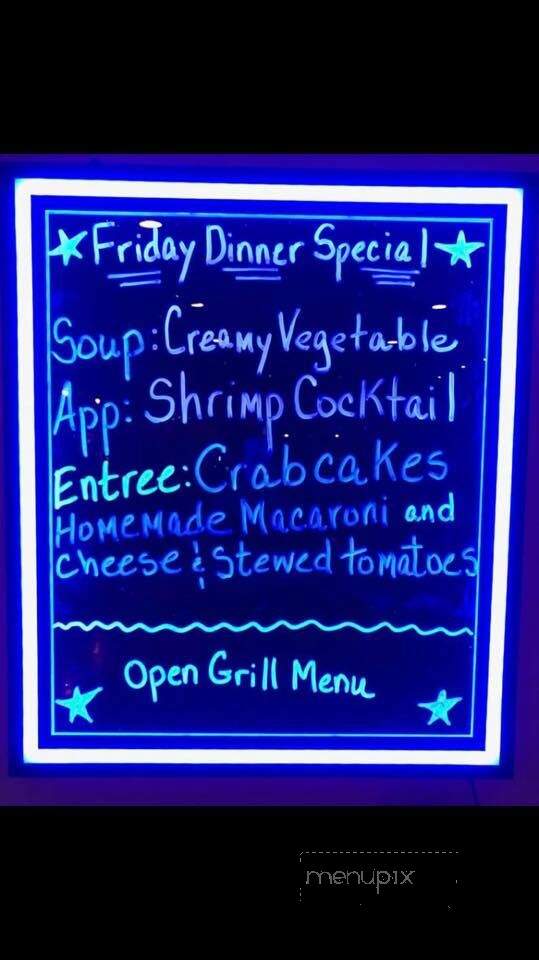 Friday Dinner Special
Soup: Creamy Vegetable
App: Shrimp Cocktail
Entree: Crabcakes
Homemade Macaroni and
cheese & Stewed tomatoes
Open Grill Menu
menupix